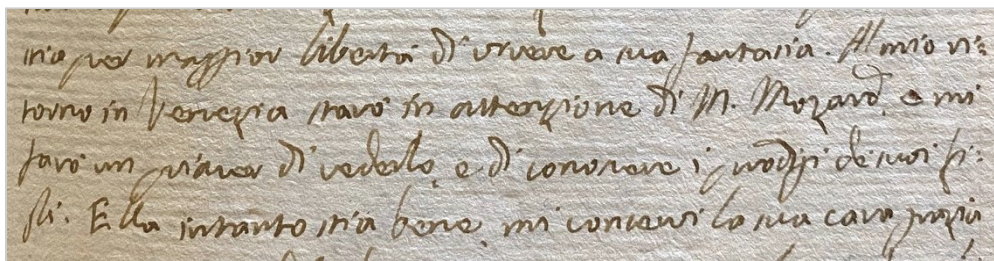 sia per maggior libertà di vivere a sua fantasia. Al mio ri=
torno in Venezia starò in attenzione di M. Mozard, e mi
farò un piacer di vederlo, e di conoscere i prodigi de suoi fi=
gli. Ella intanto stia bene, mi conservi la sua cara grazia